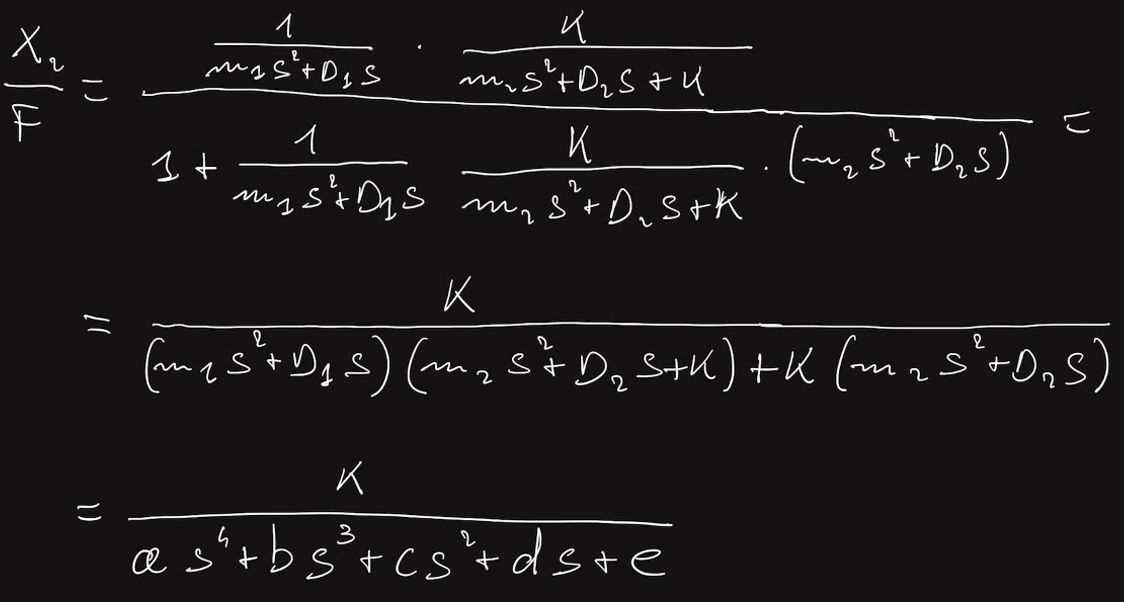 X₂/F = (1/(m₁s²+D₁s) · K/(m₂s²+D₂s+K)) / (1 + 1/(m₁s²+D₁s) K/(m₂s²+D₂s+K) · (m₂s²+D₂s)) =
= K / ((m₁s²+D₁s)(m₂s²+D₂s+K)+K(m₂s²+D₂s))
= K / (as⁴+bs³+cs²+ds+e)